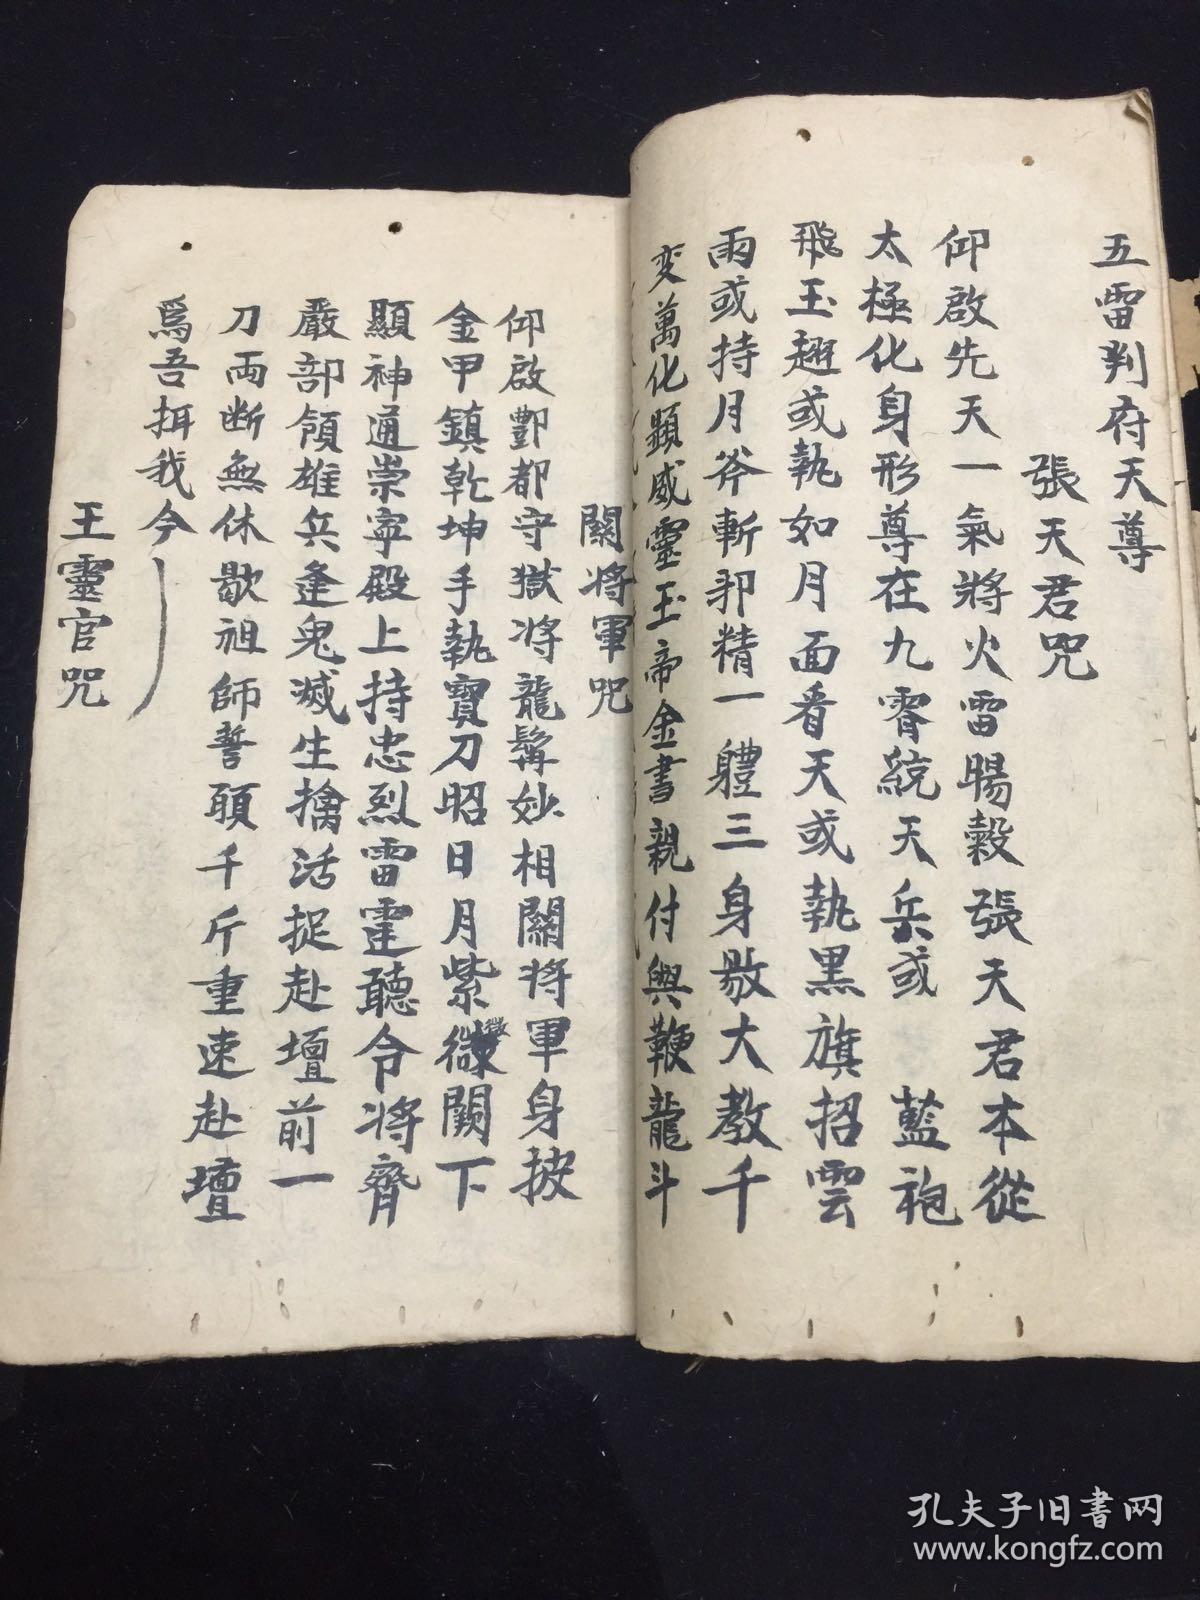 五雷判府天尊
張天君咒
仰啟先天一氣將火雷暘穀張天君本從
太極化身形尊在九霄統天兵或藍袍
飛玉趐或執如月面看天或執黑旗招雲
雨或持月斧斬邪精一體三身敭大教千
变萬化顯威靈玉帝金書親付與鞭龍斗
關将軍咒
仰啟酆都守獄将龍髯妙相關将軍身披
金甲鎮乾坤手執寶刀昭日月紫微闕下
顯神通崇寧殿上持忠烈雷霆聽令将齊
嚴部領雄兵逢鬼滅生擒活捉赴壇前一
刀両断無休歇祖師誓願千斤重速赴壇
爲吾揖我今
王靈官咒
孔夫子旧书网
www.kongfz.com